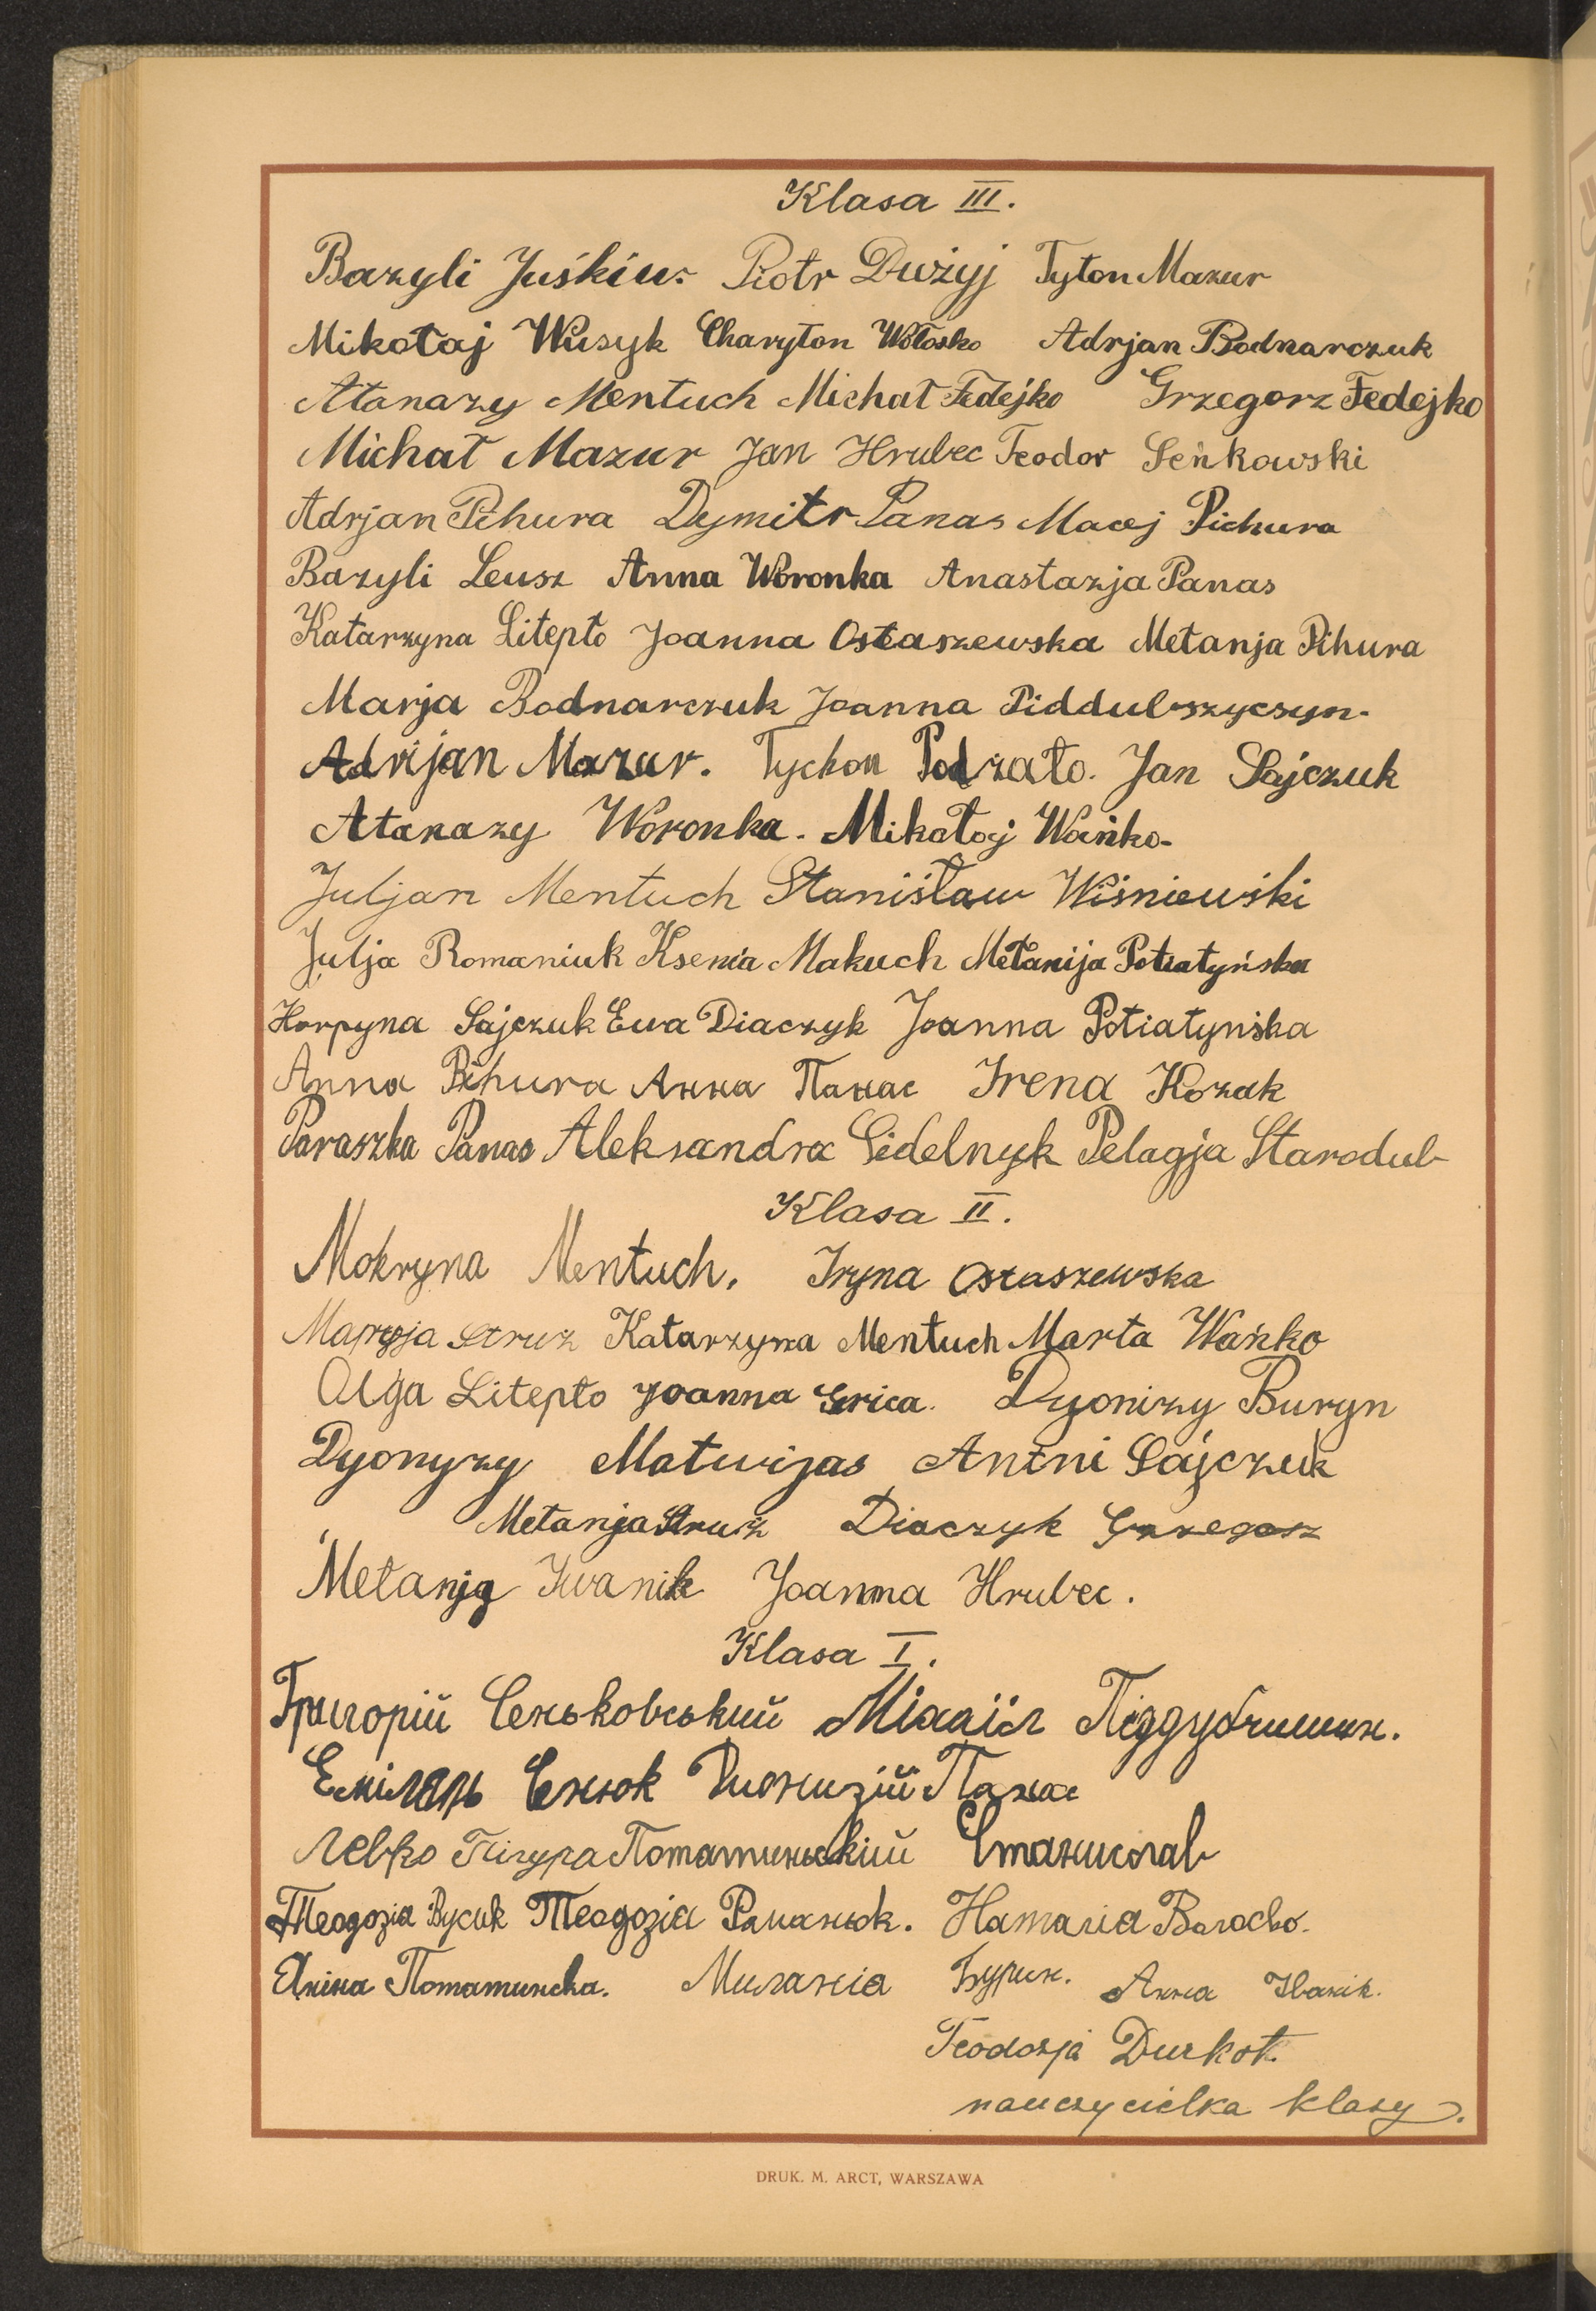 Klasa III.
Bazyli Juśkiw. Piotr Dużyj Tyton Mazur
Mikołaj Wusyk Charyton Wołosko Adrjan Bodnarczuk
Atanazy Mentuch Michał Fedejko Grzegorz Fedejko
Michał Mazur Jan Hrubec Teodor Seńkowski
Adrjan Pihura Dymitr Panas Macej Pichura
Bazyli Leusz Anna Woronka Anastazja Panas
Katarzyna Litepło Joanna Ostaszewska Mełanja Pihura
Marja Bodnarczuk Joanna Piddubszycsyn.
Adrijan Mazur. Tychon Podzało. Jan Sajczuk
Atanazy Woronka. Mikołaj Wańko.
Juljan Mentuch Stanisław Wiśniewśki
Julja Romaniuk Ksenia Makuch Mełanija Potiatyńska
Horpyna Sajczuk Ewa Diaczyk Joanna Potiatyńska
Anna Pihura Анна Панас Irena Kozak
Paraszka Panas Aleksandra Sidelnyk Pelagja Starodub
Klasa II.
Mokryna Mentuch. Iryna Ostaszewska
Struż Katarzyna Mentuch Marta Wańko
Olga Litepło Joanna Grica. Dyonizy Buryn
Dyonyzy Matwijas Antni Sajczuk
Mełanja Struż Diaczyk Grzegosz
Mełanja Iwanik Joanna Hrubec.
Klasa I.
Григорій Сеньковський Міхаіл Піддубчишин.
Еміляль Сенюк Дионизій Панас
Левко Пігура Потатинський Станислав
Теодозіа Вусик Теодозіа Романюк. Наталіа Волосво.
Аніна Потатинска. Миланіа Бурин. Анна Іванік.
Teodozja Durkot.
nauczycielka klasy.
DRUK. M. ARCT, WARSZAWA